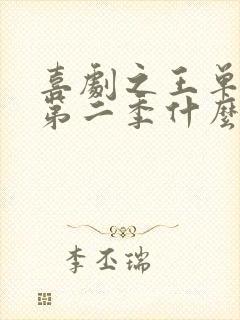 喜劇之王單
第二季什麼
李丕瑞